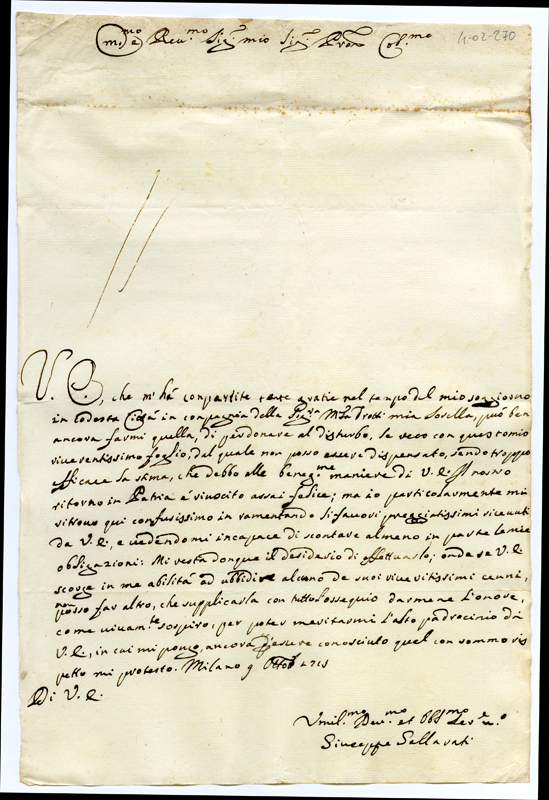 4-02-270
Em.mo e Rev.mo Sig.r mio Sig.r Pron Col.mo
V. E., che m'hà compartite tante gratie nel tempo del mio soggiorno
in codesta Città in compagnia della Sig.ra M.sa Trotti mia Sorella, può ben
ancora farmi quella, di perdonare al disturbo, le reco con questo mio
riverentissimo foglio, dal quale non posso essere dispensato, sendo troppo
efficace la stima, che debbo alle benig.me maniere di V. E. Il nostro
ritorno in Patria è riuscito assai felice; ma io particolarmente mi
ritrovo qui confusissimo in ramentando li favori preggiatissimi ricevuti
da V. E., e vedendomi incapace di scontare almeno in parte le mie
obligazioni: Mi resta donque il desiderio di effettuarlo; onde se V. E.
scorge in me abilità ad ubbidire alcuno de suoi riveritissimi cenni,
non posso far altro, che supplicarla con tutto l'ossequio darmene l'onore,
come vivam.te sospiro, per poter meritarmi l'alto padrocinio di
V. E., in cui mi pongo, ancora d'essere conosciuto quel con sommo ris
petto mi protesto. Milano 9 Ottob 1715
Di V. E.
Vmil.mo Dev.mo et Obl.mo Ser.re
Giuseppe